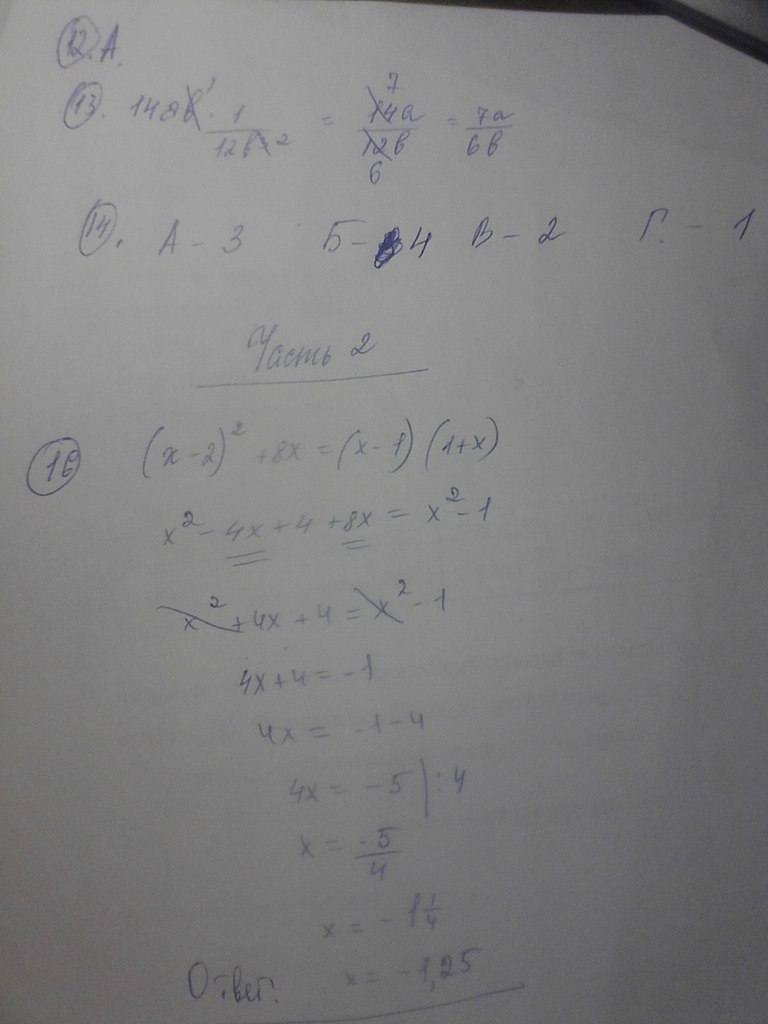 12. А.
13. 14ab · 1/12b² = 14a/12b = 7a/6b
14. А - 3 Б - 4 В - 2 Г. - 1
Часть 2
16 (x-2)² +8x = (x-1) (1+x)
x² - 4x + 4 + 8x = x² - 1
x² + 4x + 4 = x² - 1
4x + 4 = -1
4x = -1-4
4x = -5 | : 4
x = -5/4
x = - 1 1/4
Ответ. x = -1,25